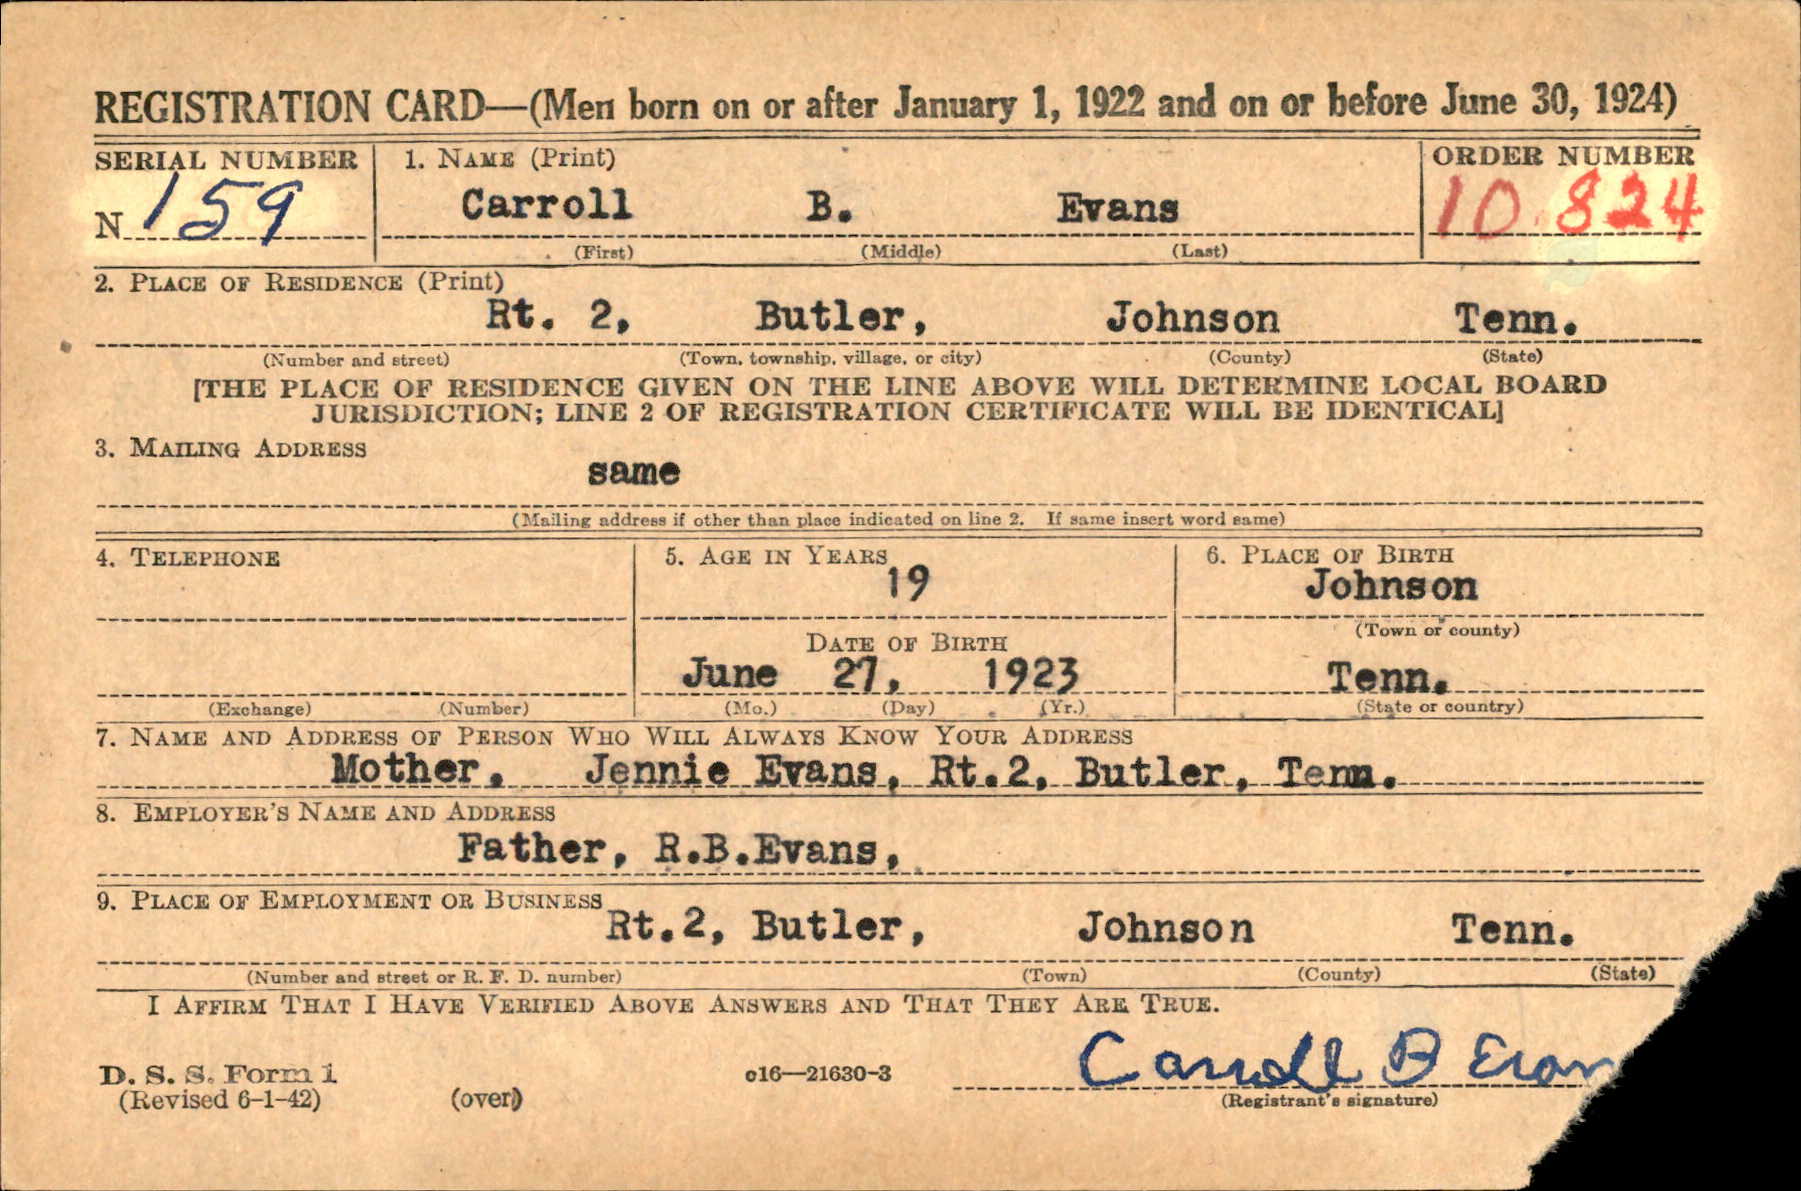 REGISTRATION CARD—(Men born on or after January 1, 1922 and on or before June 30, 1924)
SERIAL NUMBER 1. NAME (Print) ORDER NUMBER
N 159 Carroll B. Evans 10 824
(First) (Middle) (Last)
2. PLACE OF RESIDENCE (Print)
Rt. 2, Butler, Johnson Tenn.
(Number and street) (Town, township, village, or city) (County) (State)
[THE PLACE OF RESIDENCE GIVEN ON THE LINE ABOVE WILL DETERMINE LOCAL BOARD
JURISDICTION; LINE 2 OF REGISTRATION CERTIFICATE WILL BE IDENTICAL]
3. MAILING ADDRESS
same
(Mailing address if other than place indicated on line 2. If same insert word same)
4. TELEPHONE 5. AGE IN YEARS 6. PLACE OF BIRTH
19 Johnson
(Town or county)
DATE OF BIRTH
June 27, 1923 Tenn.
(Exchange) (Number) (Mo.) (Day) (Yr.) (State or country)
7. NAME AND ADDRESS OF PERSON WHO WILL ALWAYS KNOW YOUR ADDRESS
Mother, Jennie Evans, Rt.2, Butler, Tenn.
8. EMPLOYER'S NAME AND ADDRESS
Father, R.B.Evans,
9. PLACE OF EMPLOYMENT OR BUSINESS
Rt.2, Butler, Johnson Tenn.
(Number and street or R. F. D. number) (Town) (County) (State)
I AFFIRM THAT I HAVE VERIFIED ABOVE ANSWERS AND THAT THEY ARE TRUE.
Carroll B Evan
D. S. S. Form 1 c16—21630-3
(Revised 6-1-42) (over) (Registrant's signature)